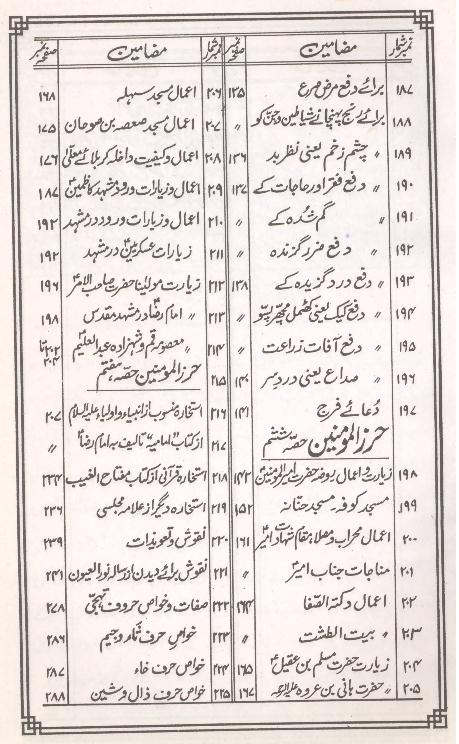 نمبر شمار مضامین صفحہ نمبر
۱۸۷ برائے دفع مرض صرع ۱۳۵
۱۸۸ برائے رنج پہنچانے شیاطین و جن کو 〃
۱۸۹ 〃 چشم زخم یعنی نظر بد ۱۳۶
۱۹۰ 〃 دفع فقر اور حاجات کے ۱۳۷
۱۹۱ 〃 گم شدہ کے
۱۹۲ 〃 دفع ضرر گزندہ
۱۹۳ 〃 دفع درد گزیدہ کے ۱۳۸
۱۹۴ 〃 دفع کیک یعنی کھٹمل مچھر پسو
۱۹۵ 〃 دفع آفات زراعت
۱۹۶ 〃 صداع یعنی درد سر ۱۴۰
۱۹۷ دعائے فرج ۱۴۱
حرز المومنین حصہ ششم
۱۹۸ زیارت و اعمال روضہ حضرت امیر المومنینؑ ۱۴۲
۱۹۹ مسجد کوفہ۔ مسجد حنانہ ۱۵۲
۲۰۰ اعمال محراب و مصلا، مقام شہادت امیرؑ ۱۶۱
۲۰۱ مناجات جناب امیرؑ 〃
۲۰۲ اعمال دکۃ الصّفا ۱۶۴
۲۰۳ 〃 بیت الطشت 〃
۲۰۴ زیارت حضرت مسلم بن عقیلؑ ۱۶۵
۲۰۵ 〃 حضرت ہانی بن عروہ علیہ الرحمہ ۱۶۷
نمبر شمار مضامین صفحہ نمبر
۲۰۶ اعمال مسجد سہلہ ۱۶۸
۲۰۷ اعمال مسجد صعصعہ بن صوحان ۱۷۵
۲۰۸ اعمال و کیفیت داخلہ کربلائے معلیٰ ۱۷۶
۲۰۹ اعمال و زیارات ورود مشہد کاظمینؑ ۱۸۷
۲۱۰ اعمال و زیارات ورود در مشہد ۱۹۲
۲۱۱ زیارات عسکریینؑ در مشہد ۱۹۲
۲۱۲ زیارت مولینا حضرت صاحب الامرؑ ۱۹۶
۲۱۳ 〃 امام رضاؑ در مشہد مقدس ۱۹۸
۲۱۴ 〃 معصومہ قم و شہزادہ عبد العظیمؑ ۲۰۲ تا ۲۰۴
حرز المومنین حصہ ہفتم
۲۱۵
۲۱۶ استخارہ منسوب از انبیاء و اولیاء علیہ السلام ۲۰۷
۲۱۷ از کتاب "امامیہ" تالیف بہ امام رضاؑ 〃
۲۱۸ استخارہ قرآنی از کتاب مفتاح الغیب ۲۳۴
۲۱۹ استخارہ دیگر از علامہ مجلسی ۲۳۶
۲۲۰ نقوش و تعویذات ۲۳۹
۲۲۱ نقوش برائے دیدن از رسالہ نور العیون ۲۴۱
۲۲۲ صفات و خواص حروف تہجی ۲۷۸
۲۲۳ خواص حرف ثاء و جیم ۲۸۶
۲۲۴ خواص حرف خاء ۲۸۷
۲۲۵ خواص حرف ذال و شین ۲۸۸